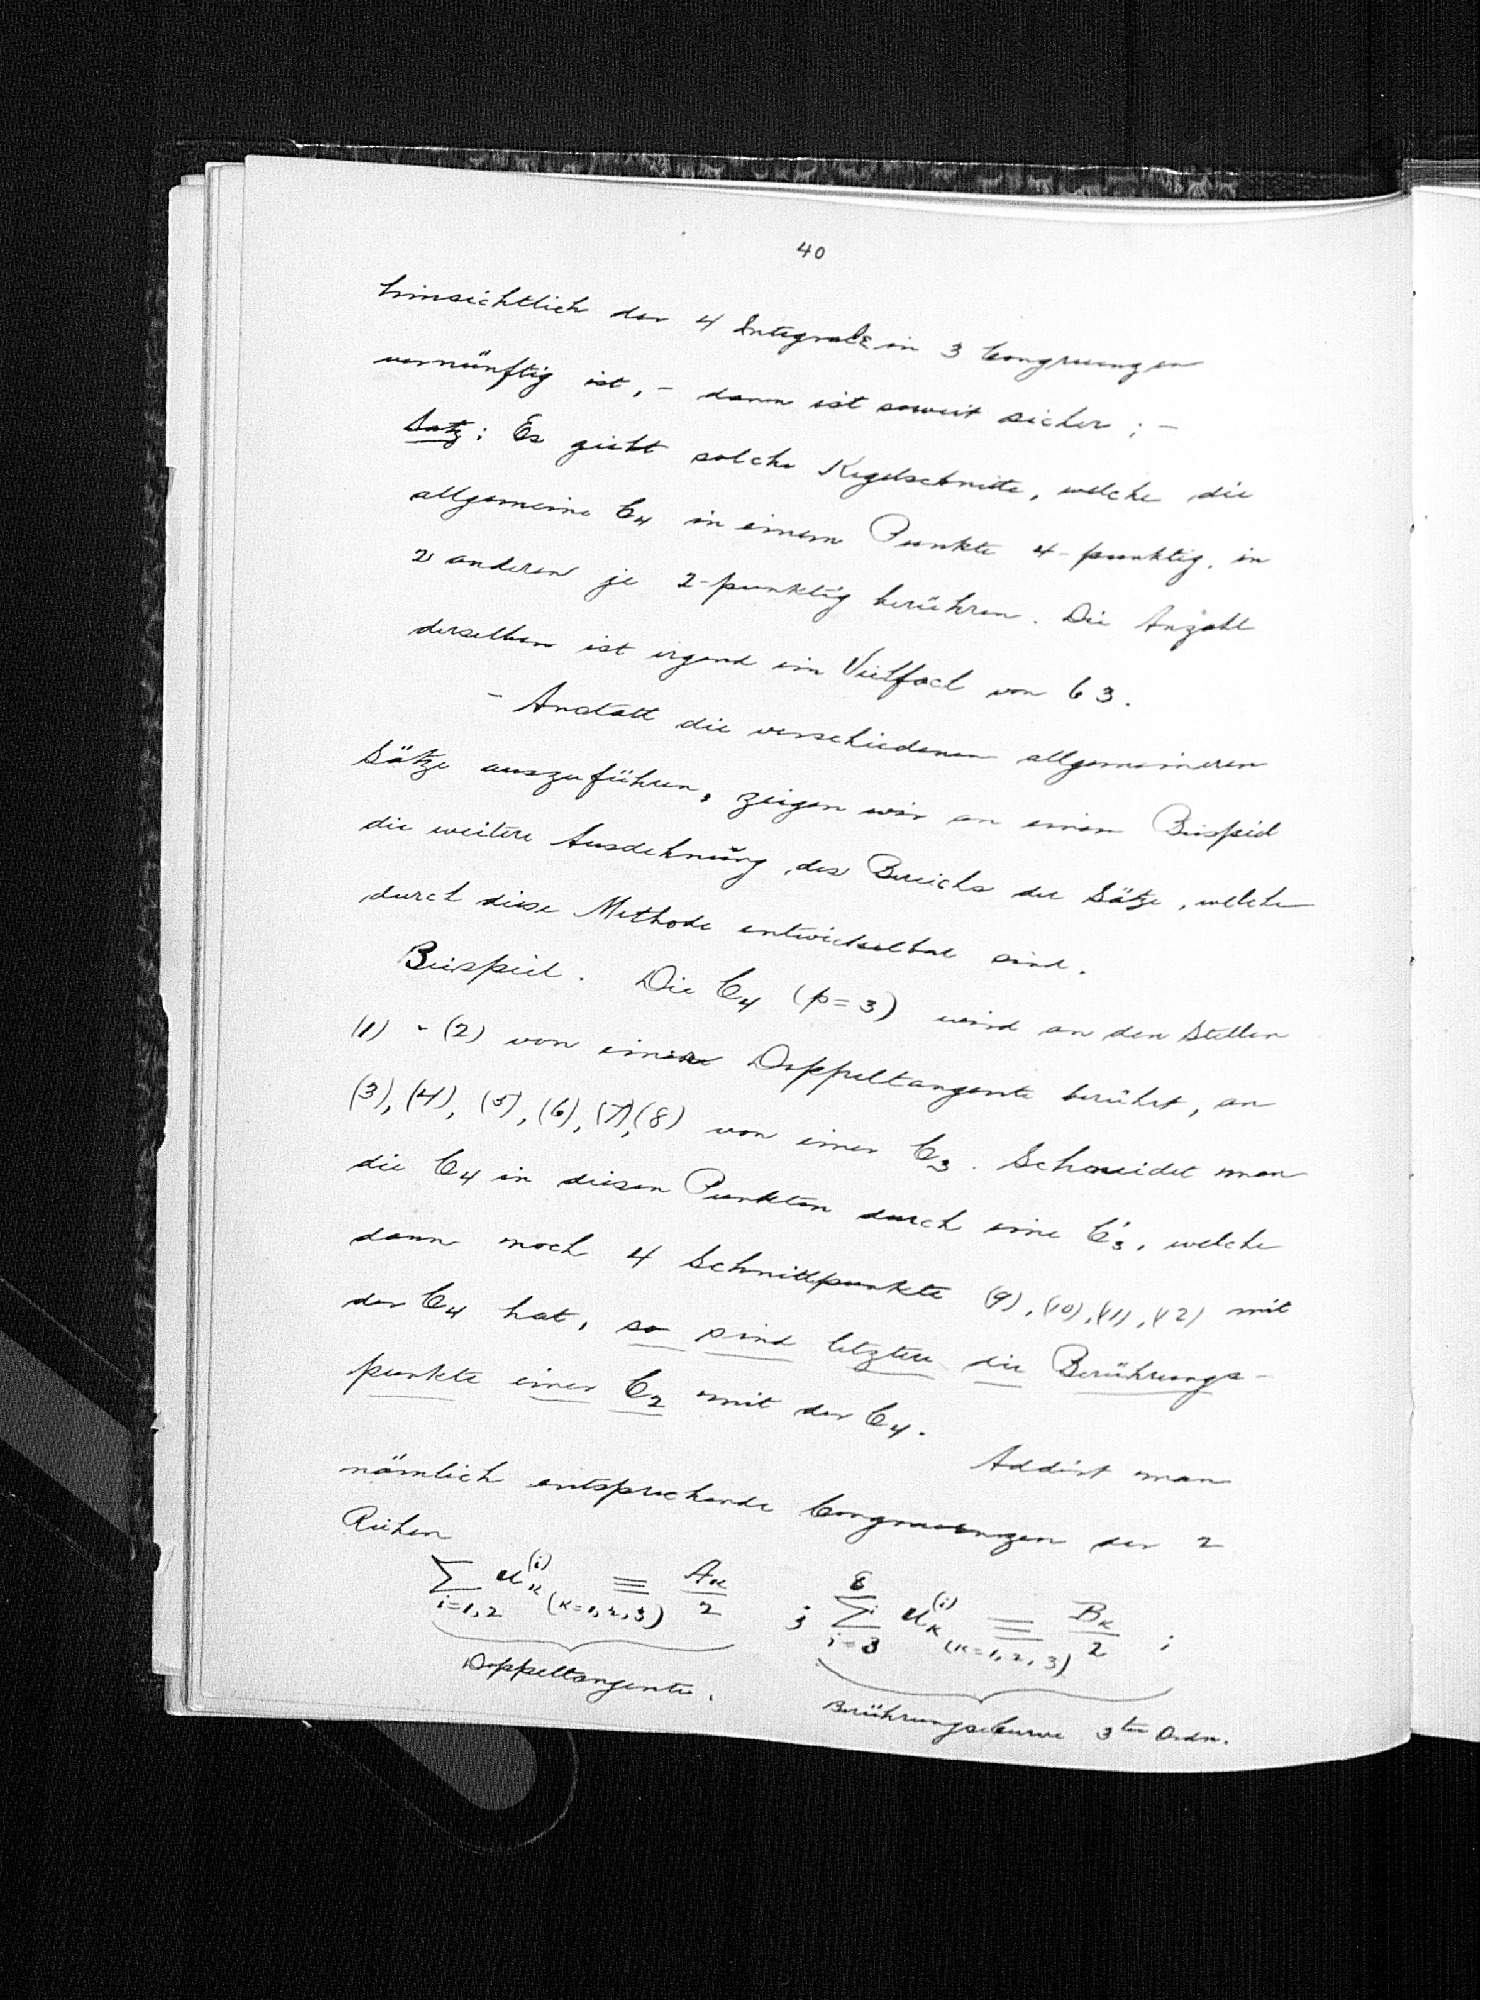 40
hinsichtlich der 4 Integrale in 3 Congruenzen
vernünftig ist, – dann ist soweit sicher; –
Satz: Es giebt solche Kegelschnitte, welche die
allgemeine C₄ in einem Punkte 4-punktig, in
2 anderen je 2-punktig berühren. Die Anzahl
derselben ist irgend ein Vielfach von 63.
– Anstatt die verschiedenen allgemeineren
Sätze auszuführen, zeigen wir an einem Beispiel
die weitere Ausdehnung des Bereichs der Sätze, welche
durch diese Methode entwickelbar sind.
Beispiel. Die C₄ (p=3) wird an den Stellen
(1) - (2) von einer Doppeltangente berührt, an
(3), (4), (5), (6), (7), (8) von einer C₃. Schneidet man
die C₄ in diesen Punkten durch eine C'₃, welche
dann noch 4 Schnittpunkte (9), (10), (11), (12) mit
der C₄ hat, so sind letztere die Berührungs-
punkte einer C₂ mit der C₄.
Addirt man
nämlich entsprechende Congruenzen der 2
Reihen
∑_{i=1,2} u_κ^{(i)} (κ=1,2,3) ≡ A_κ/2 ; ∑_{i=3}^{8} u_κ^{(i)} (κ=1,2,3) ≡ B_κ/2 ;
Doppeltangente. Berührungscurve 3ter Ordn.